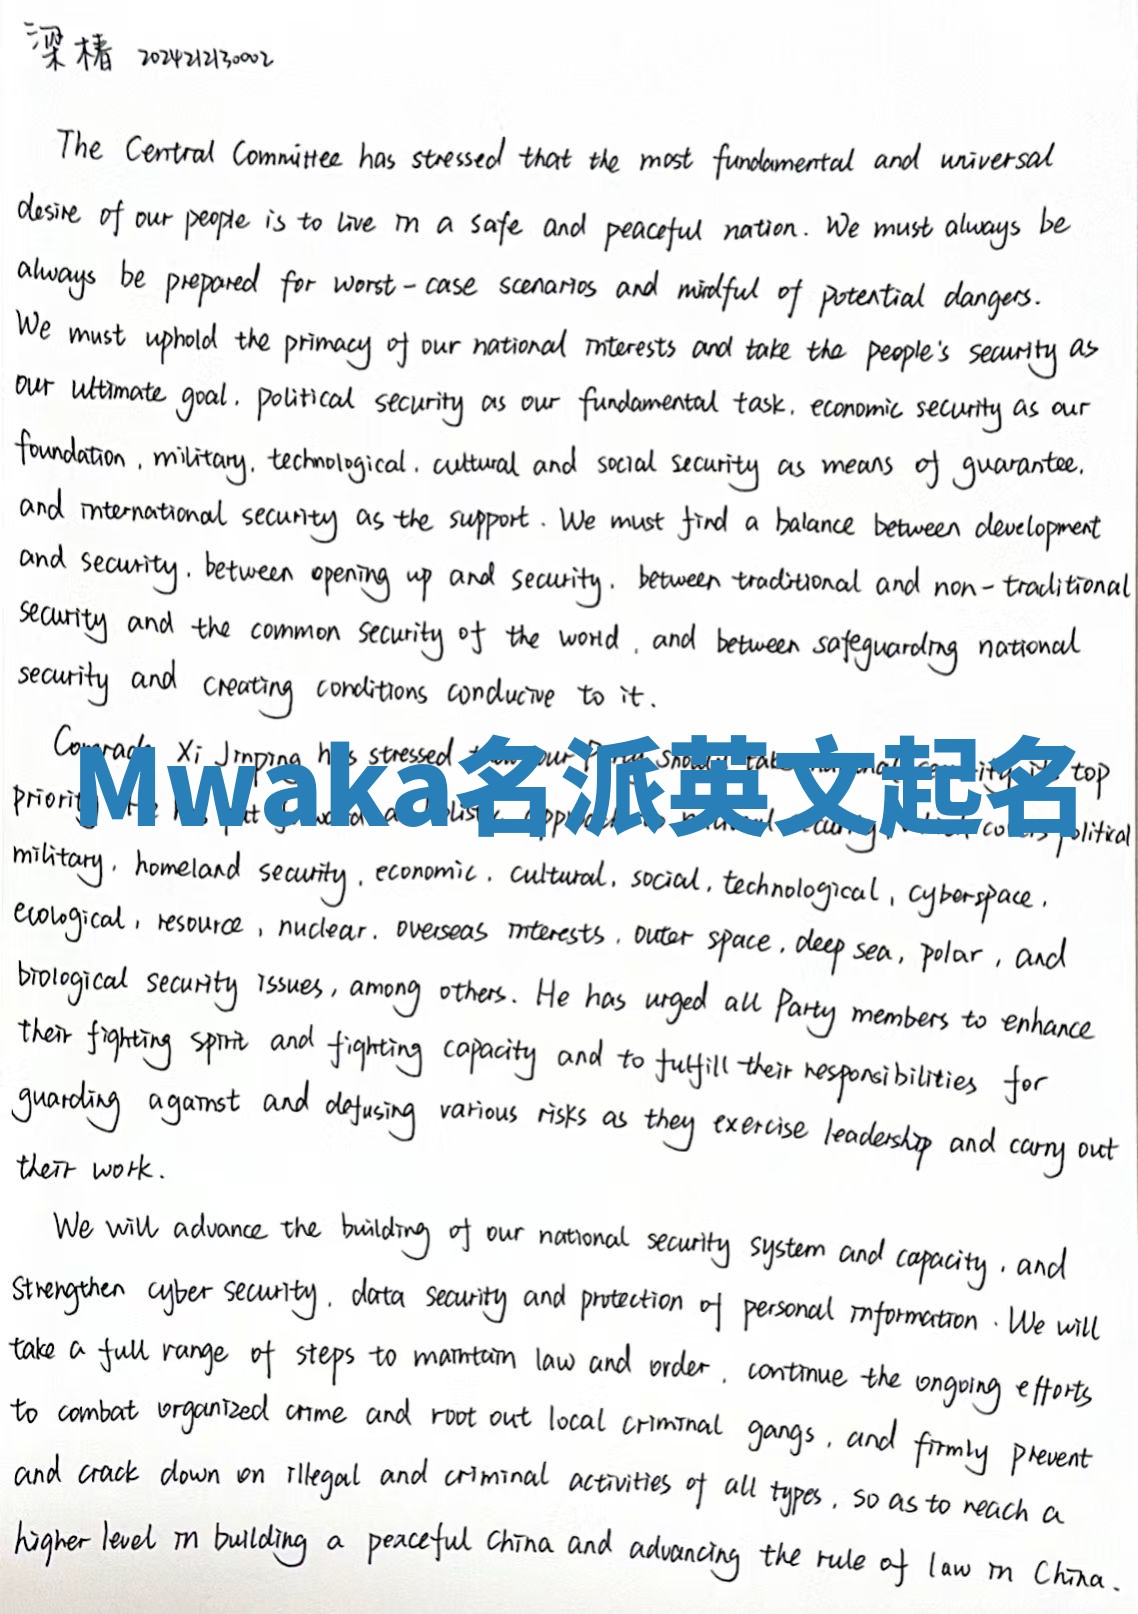 梁椿 2024212130002
The Central Committee has stressed that the most fundamental and universal
desire of our people is to live in a safe and peaceful nation. We must always be
always be prepared for worst-case scenarios and mindful of potential dangers.
We must uphold the primacy of our national interests and take the people's security as
our ultimate goal, political security as our fundamental task, economic security as our
foundation, military, technological, cultural and social security as means of guarantee,
and international security as the support. We must find a balance between development
and security, between opening up and security, between traditional and non-traditional
security and the common security of the world, and between safeguarding national
security and creating conditions conducive to it.
Comrade Xi Jinping has stressed our top
Mwaka名派英文起名
priority put political
military, homeland security, economic, cultural, social, technological, cyberspace,
ecological, resource, nuclear, overseas interests, outer space, deep sea, polar, and
biological security issues, among others. He has urged all Party members to enhance
their fighting spirit and fighting capacity and to fulfill their responsibilities for
guarding against and defusing various risks as they exercise leadership and carry out
their work.
We will advance the building of our national security system and capacity, and
strengthen cyber security, data security and protection of personal information. We will
take a full range of steps to maintain law and order, continue the ongoing efforts
to combat organized crime and root out local criminal gangs, and firmly prevent
and crack down on illegal and criminal activities of all types, so as to reach a
higher level in building a peaceful China and advancing the rule of law in China.